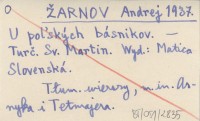 O ŽARNOV Andrej 1937.
U poľských básnikov. —
Turč. Sv. Martin. Wyd: Matica
Slovenská.
Tłum. wierszy, m.in. As-
nyka i Tetmajera.